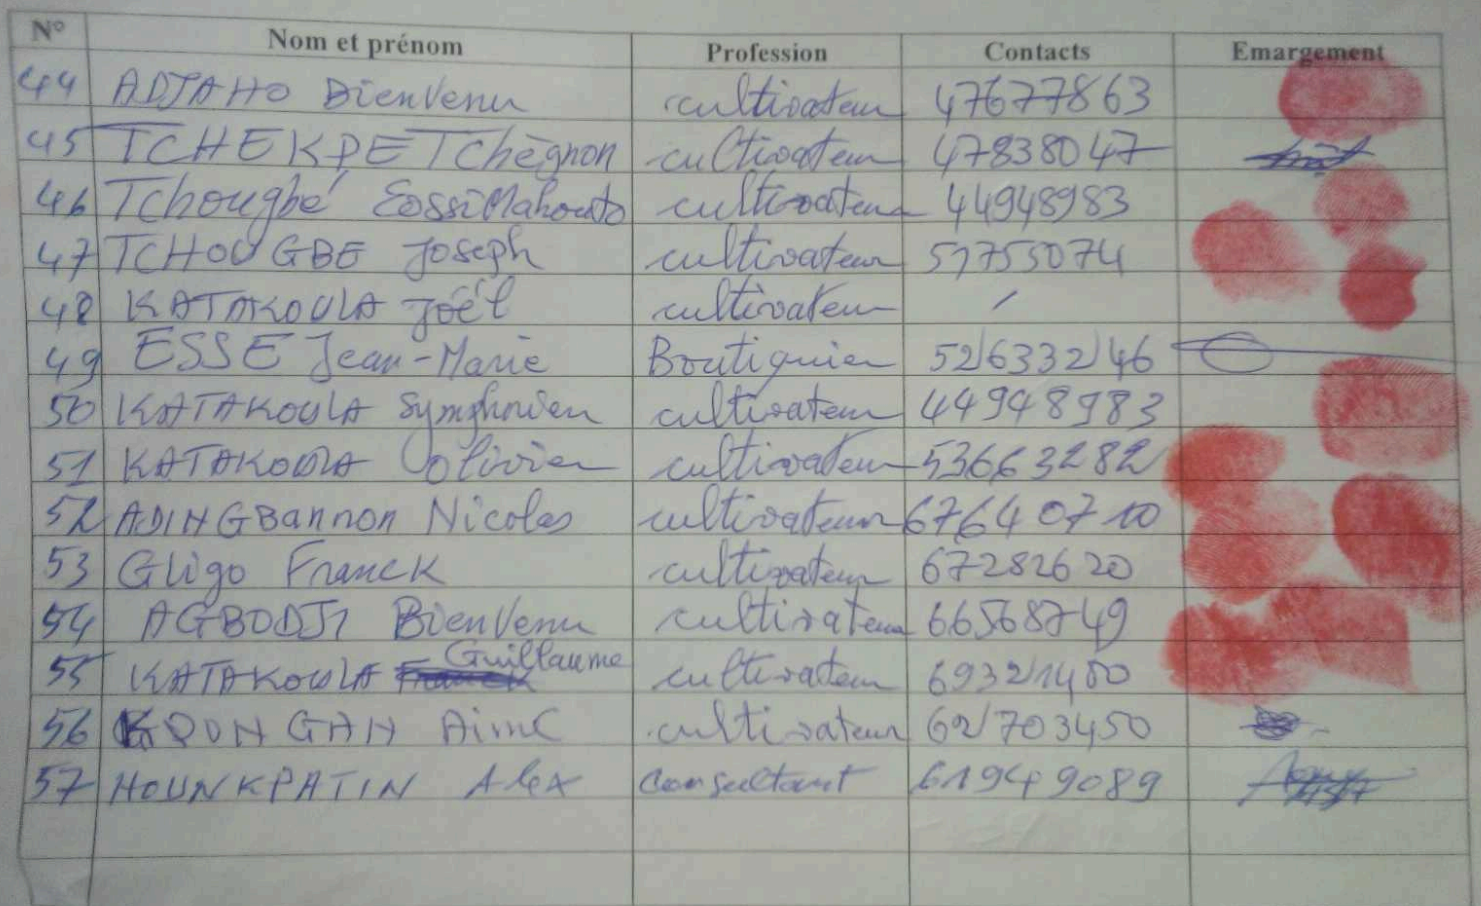 N° Nom et prénom Profession Contacts Emargement
44 ADJAHO BienVenu cultivateur 47677863
45 TCHEKPE TChègnon cultivateur 47838047
46 Tchougbé EossiMahouto cultivateur 44948983
47 TCHOUGBE Joseph cultivateur 51755074
48 KATAKOULA Joél cultivateur /
49 ESSE Jean-Marie Boutiquier 52633246
50 KATAKOULA Symphorien cultivateur 44948983
51 KATAKOULA Olivier cultivateur 53663282
52 ADINGBannon Nicolas cultivateur 67640710
53 Gligo Franck cultivateur 67282620
54 AGBODJI BienVenu cultivateur 66568749
55 KATAKOULA Guillaume cultivateur 69321480
56 Aimé cultivateur 62703450
57 HOUNKPATIN Alex Consultant 61949089